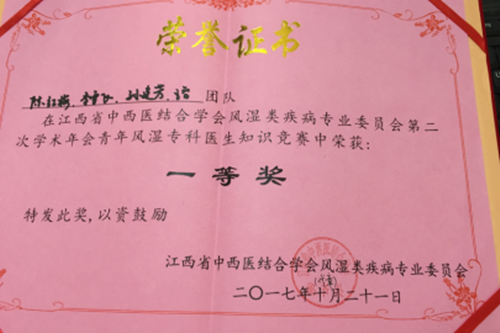 荣誉证书
团队
在江西省中西医结合学会风湿类疾病专业委员会第二
次学术年会青年风湿专科医生知识竞赛中荣获:
一等奖
特发此奖,以资鼓励
江西省中西医结合学会风湿类疾病专业委员会
二〇一七年十月二十一日